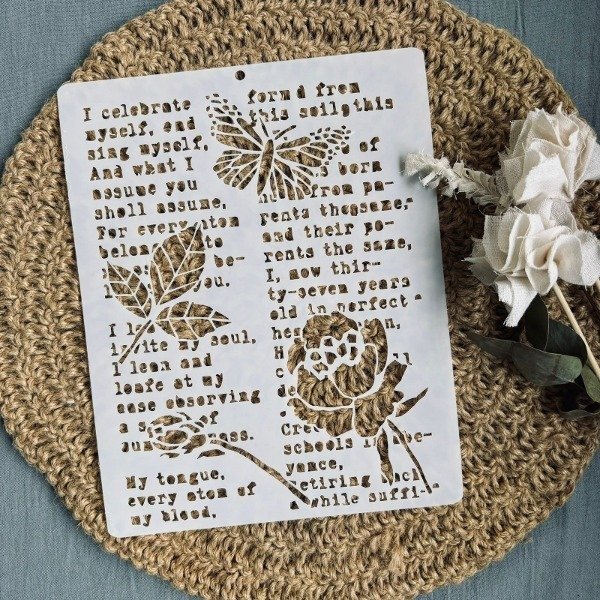 I celebrate
myself, and
sing myself,
And what I
assume you
shall assume,
For every atom
belon to
be-
you.
I l
invite my soul,
I lean and
loafe at my
ease observing
a s of
sum ass.
My tongue,
every atom of
my blood,
form'd from
this soil, this
of
born
from pa-
rents the same,
and their pa-
rents the same,
I, now thir-
ty-seven years
old in perfect
he n,
H
c ll
de
Cre
schools in abe-
yance,
retiring back
while suffi-